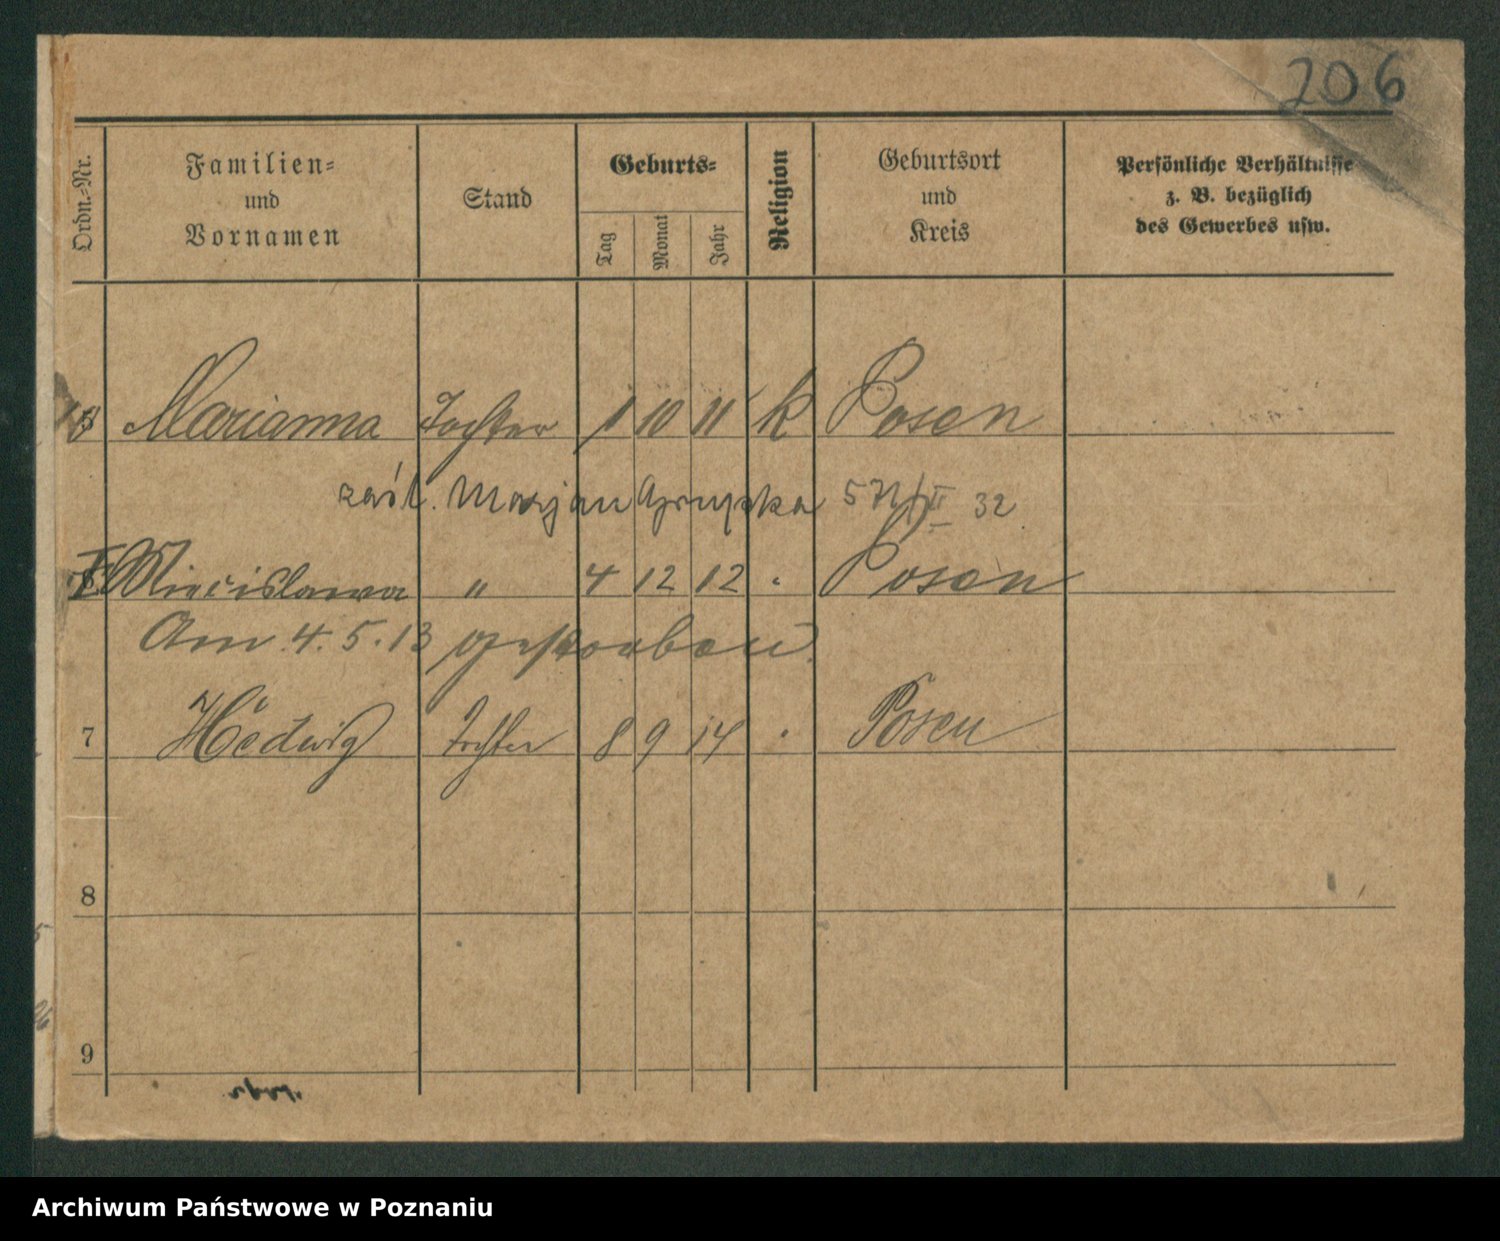 206
Ordn.-Nr. Familien- und Vornamen Stand Geburts- Tag Monat Jahr Religion Geburtsort und Kreis Persönliche Verhältnisse z. B. bezüglich des Gewerbes usw.
Marianna Tochter 1 10 11 k Posen
zaśl. Marjan 32
Miecislawa " 4 12 12 " Posen
Am 4.5.13 gestorben.
7 Hedwig Tochter 8 9 14 " Posen
8
9
Archiwum Państwowe w Poznaniu